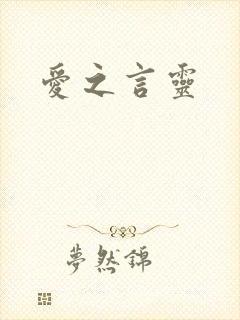 愛之言靈
夢然錦